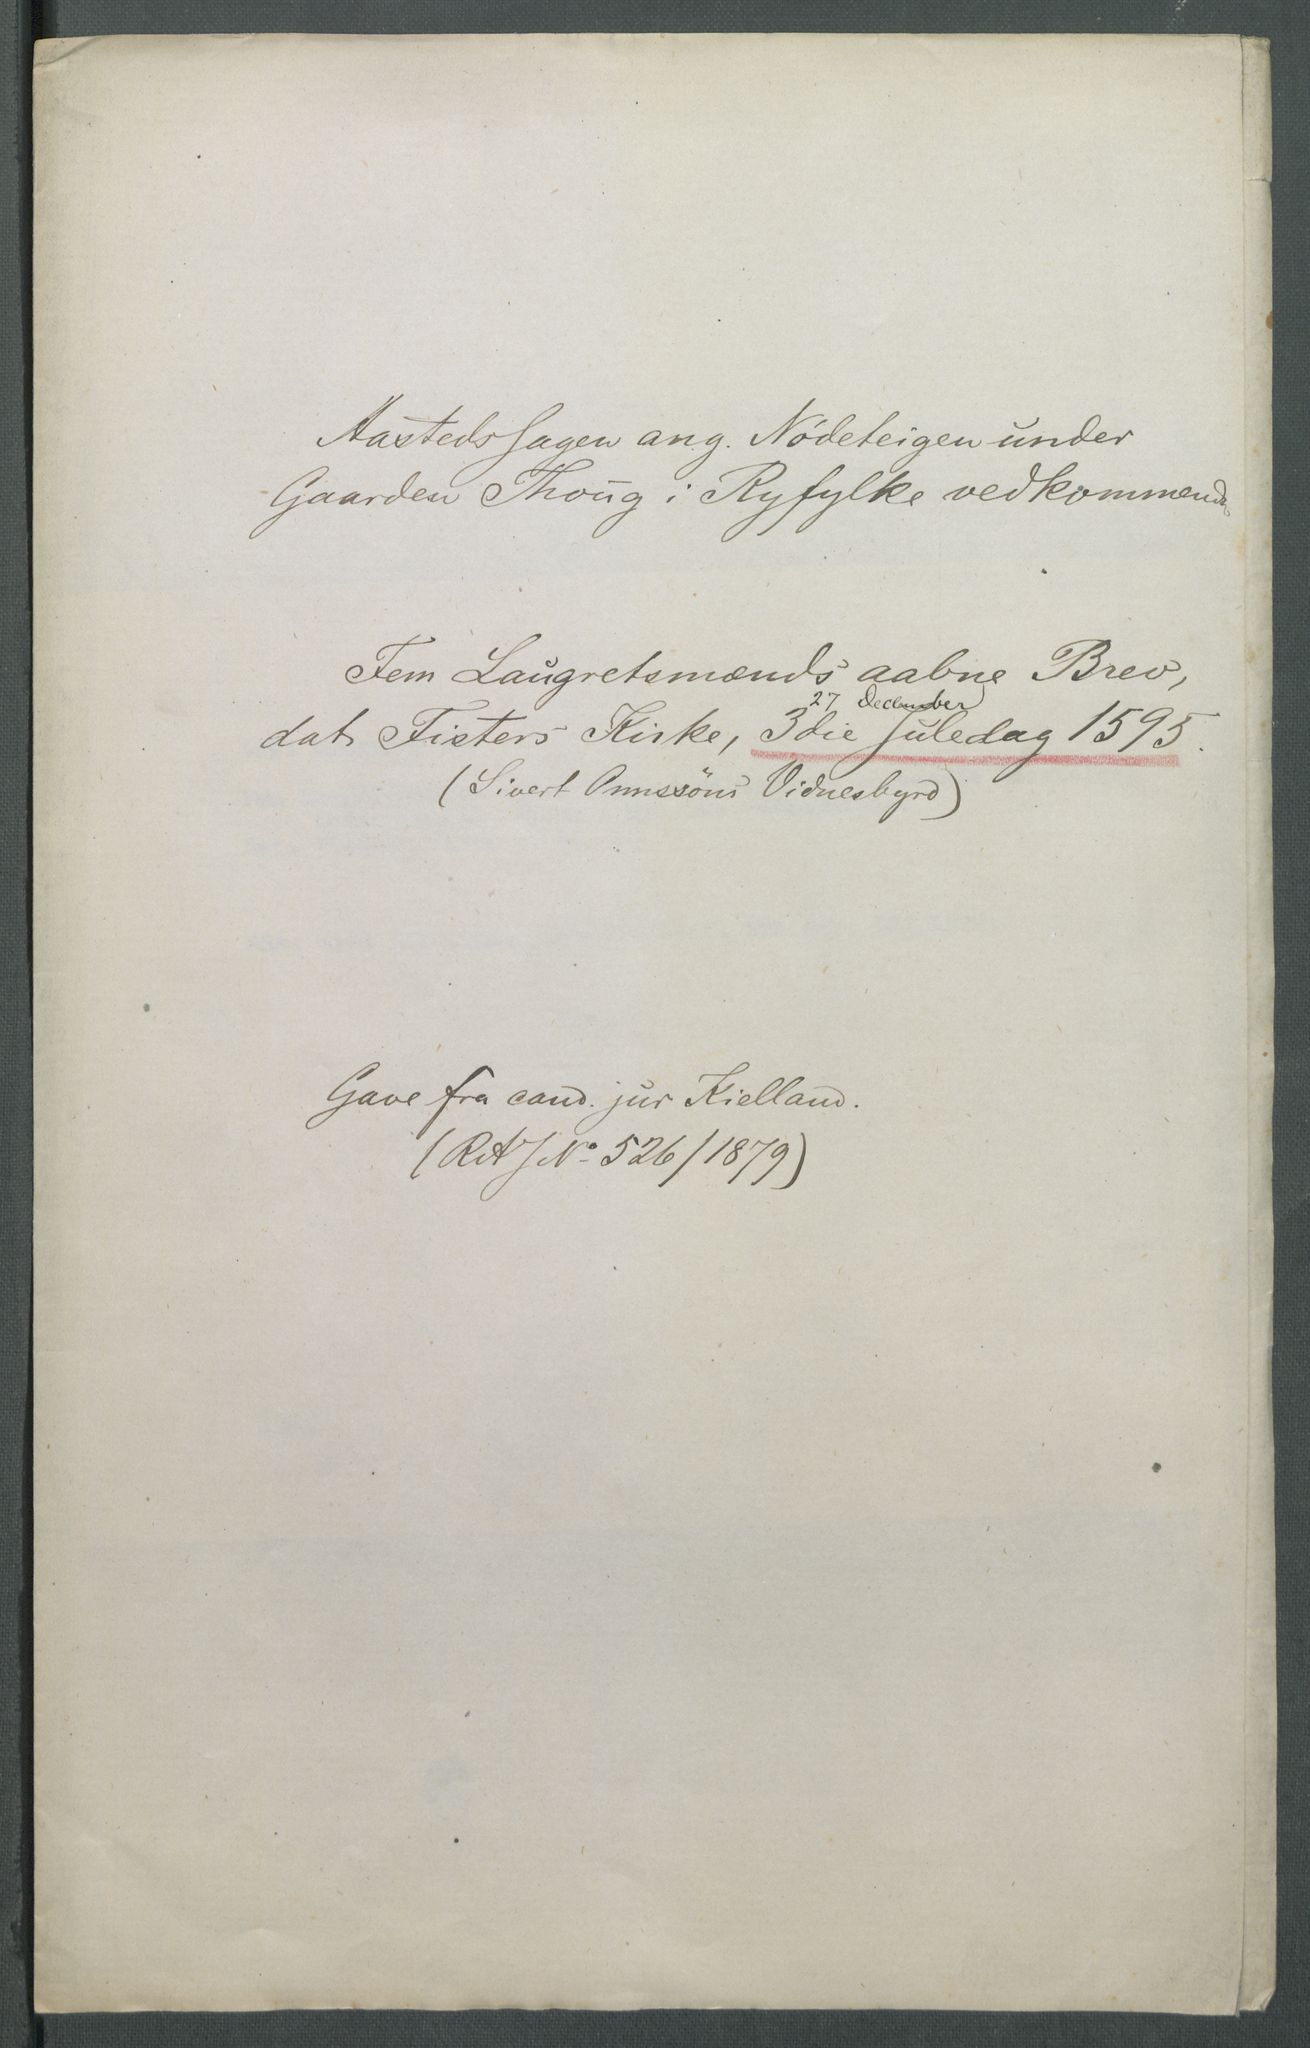 Aastedssagen ang. Nödeteigen under
Gaarden Thoug i Ryfylke vedkommende
Fem Laugretsmænds aabne Brev,
27 December
dat. Fisters Kirke, 3die Juledag 1595.
(Sivert Onnssöns Vidnesbyrd)
Gave fra cand. jur Kielland.
(RA J No 526/1879)